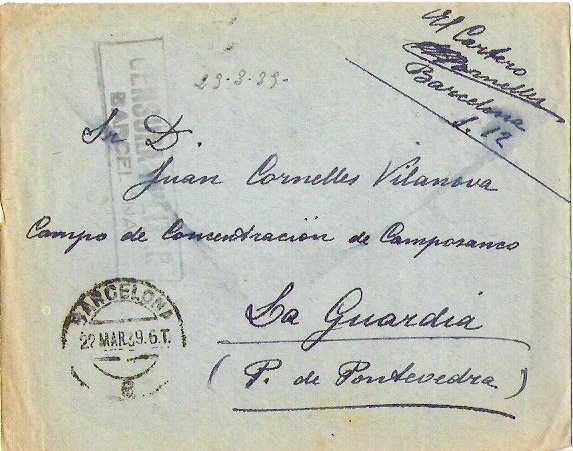 El Cartero
Cornelles
Barcelona
S. 12
23-3-39-
CENSURA MILITAR
BARCELONA
Sr D.
Juan Cornelles Vilanova
Campo de Concentración de Camposanco
La Guardia
(P. de Pontevedra)
BARCELONA
22 MAR 39. 6 T.